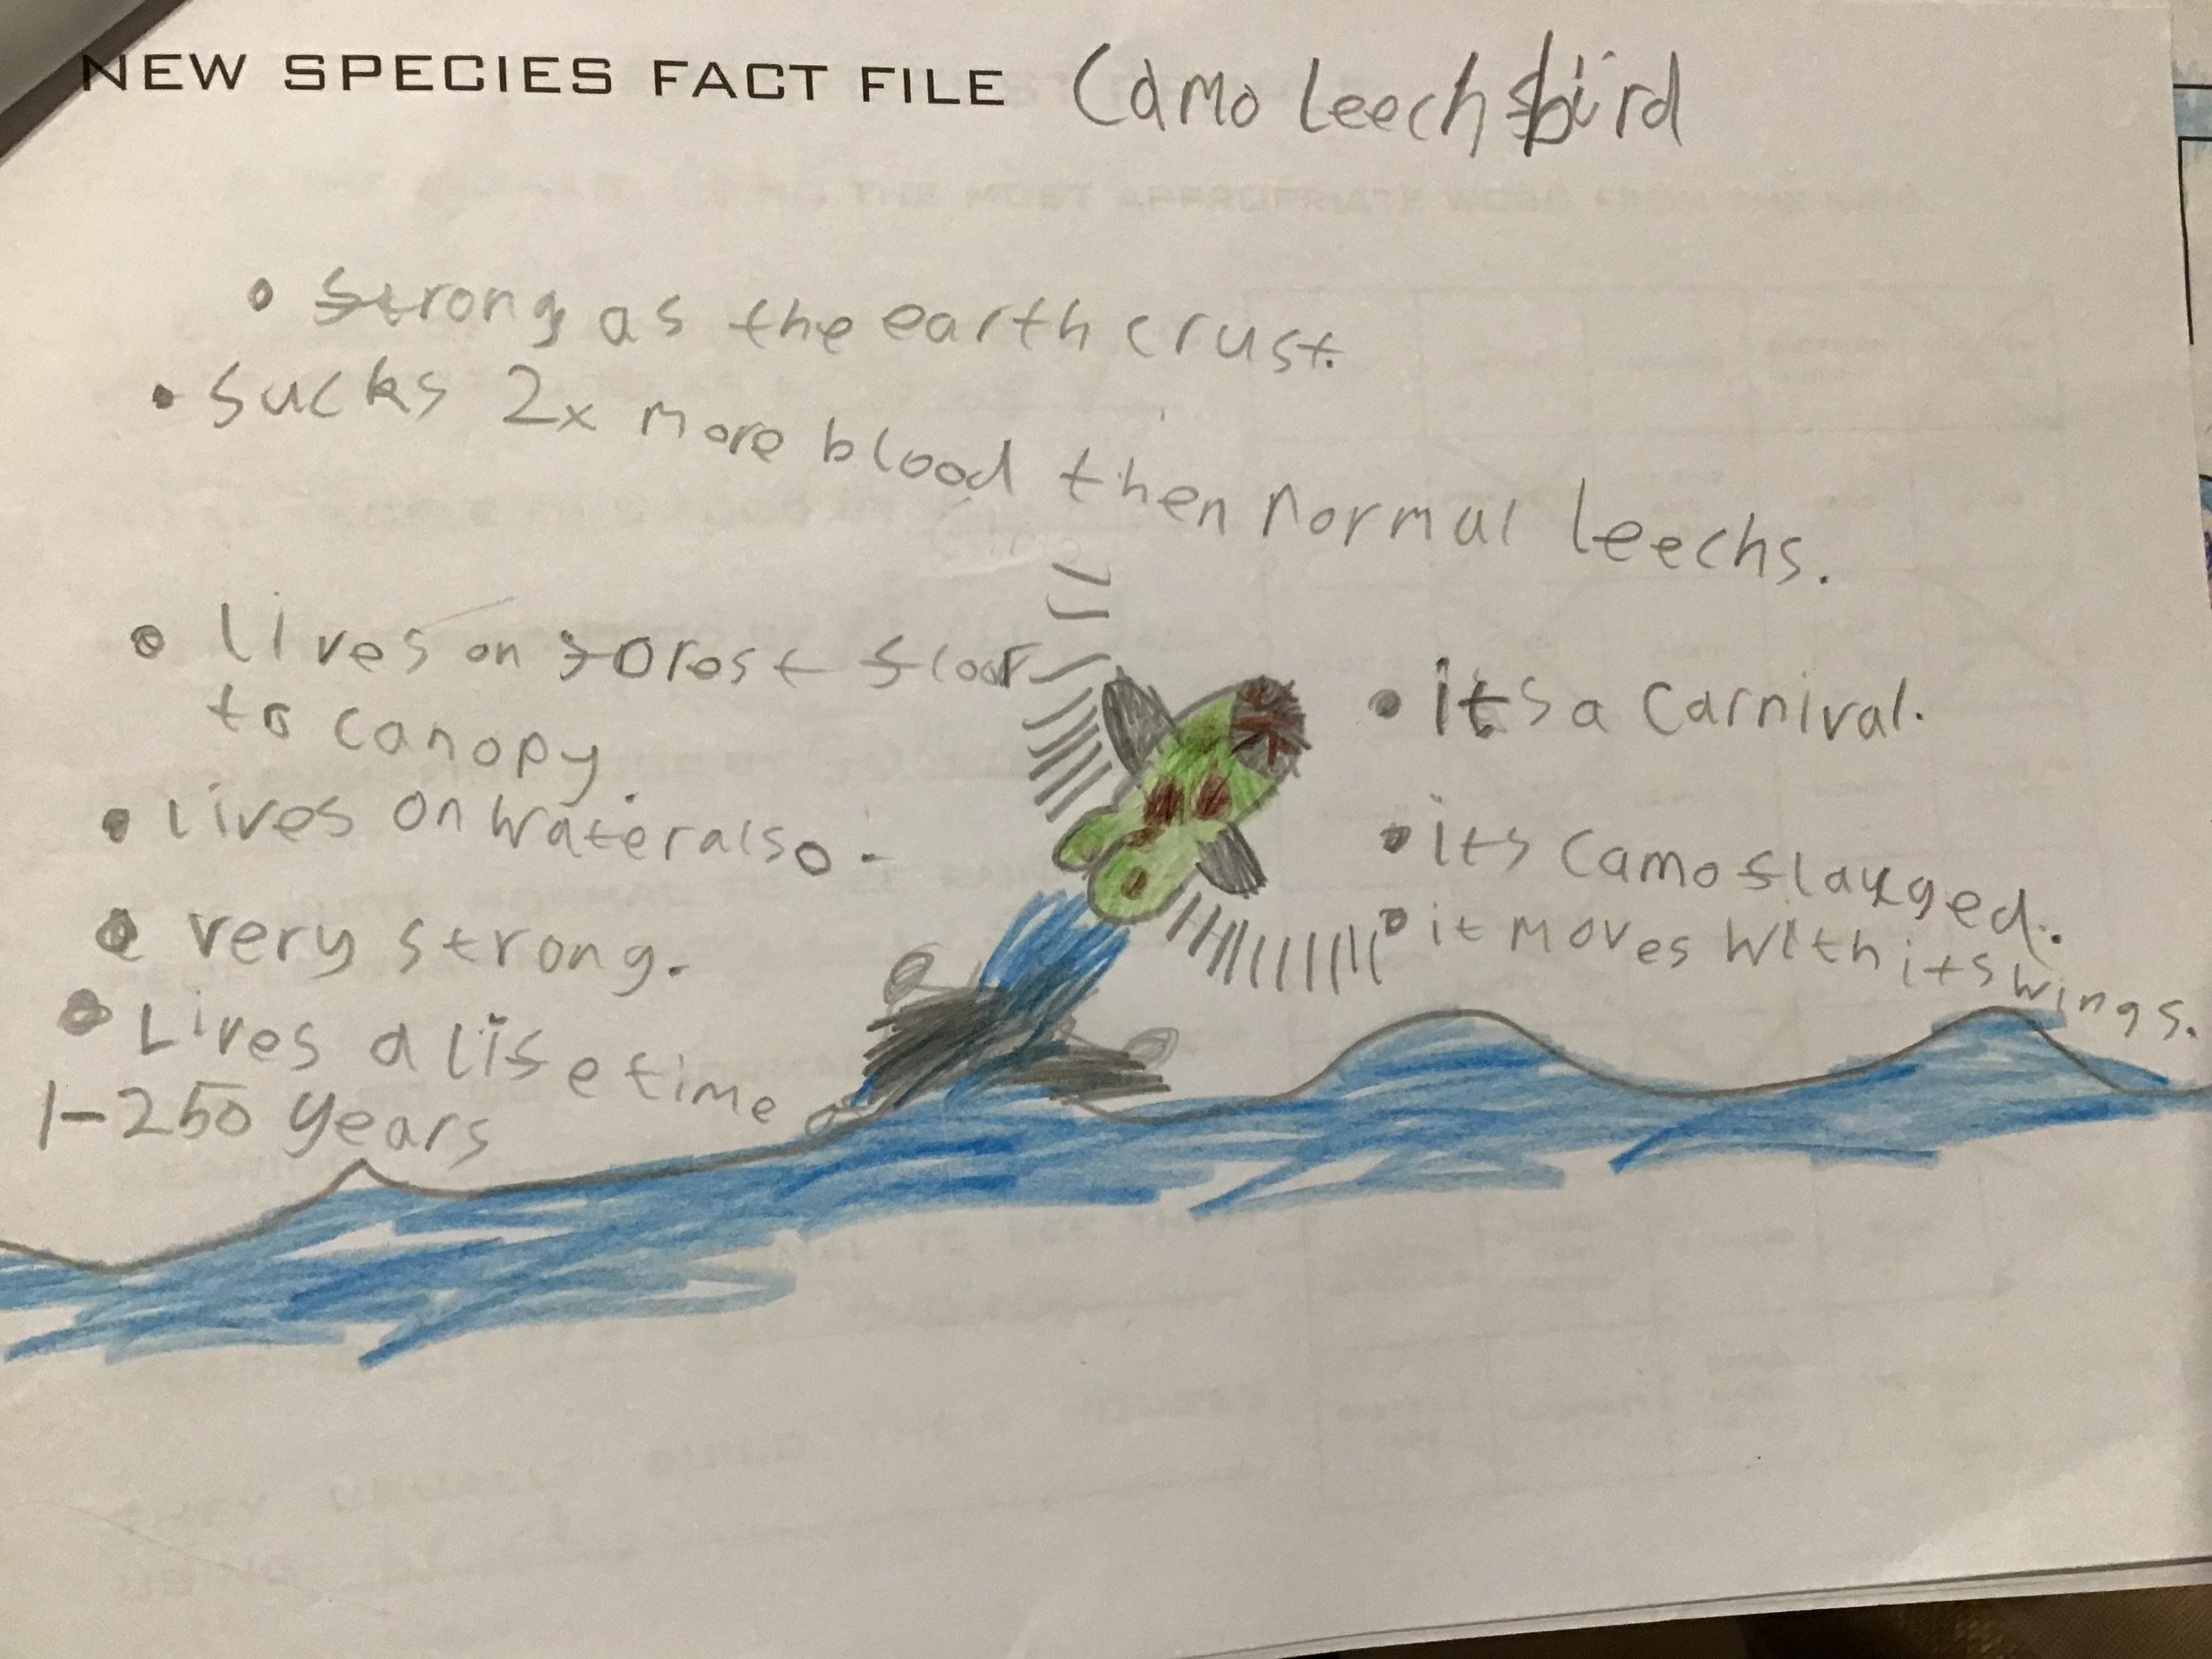 NEW SPECIES FACT FILE Camo Leech bird
• Strong as the earth crust.
• Sucks 2x more blood then normal leechs.
• lives on forest floor
to canopy.
• lives on water also.
• very strong.
• Lives a life time
1-250 years
• its a carnival.
• its camoflayged.
• it moves with its wings.